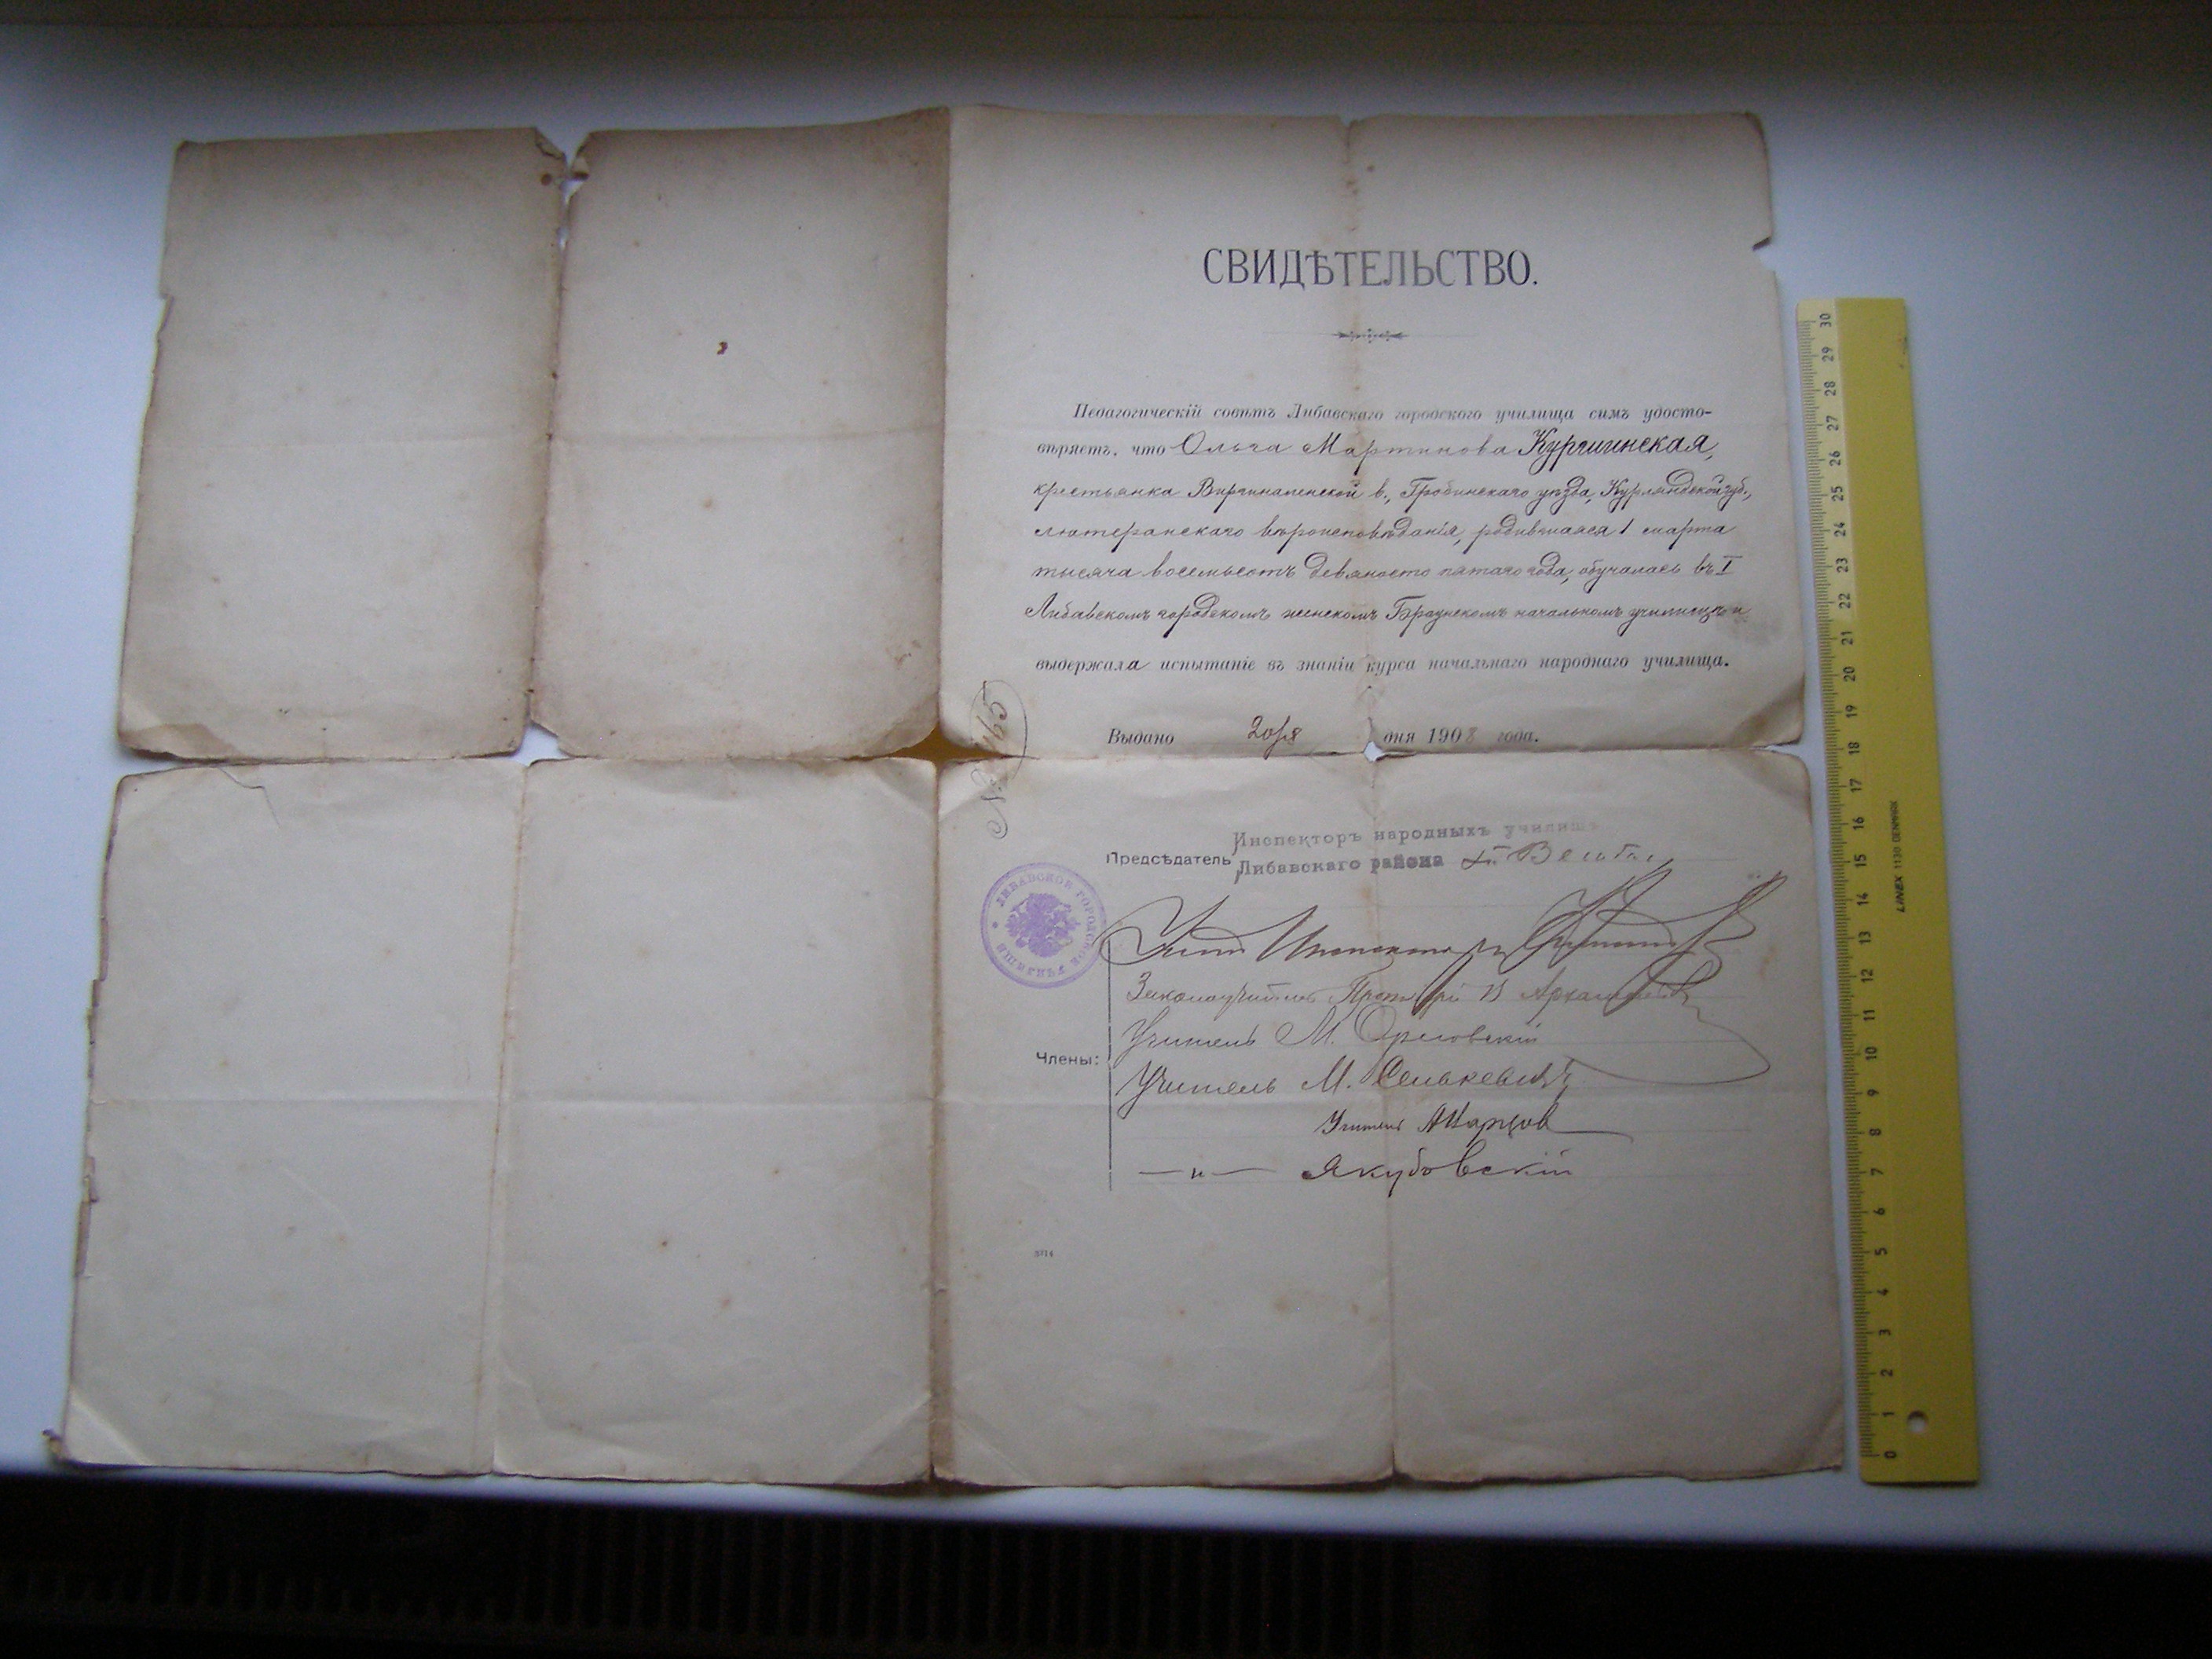 СВИДѢТЕЛЬСТВО.
Педагогическій совѣтъ Либавскаго городского училища симъ удосто-
вѣряетъ, что Ольга Мартинова Куршинская,
крестьянка Виргиналенской в., Гробинскаго уѣзда, Курляндской губ.,
лютеранскаго вѣроисповѣданія, родившаяся 1 марта
тысяча восемьсотъ девяносто пятаго года, обучалась въ I
Либавскомъ городскомъ женскомъ Браунскомъ начальномъ училищѣ и
выдержала испытаніе въ знаніи курса начальнаго народнаго училища.
Выдано дня 1908 года.
№
Инспекторъ народныхъ училищъ
Предсѣдатель Либавскаго района
ЛИБАВСКОЕ ГОРОДСКОЕ УЧИЛИЩЕ
Учит. Инспекторъ
Законоучитель
Учитель М. Орловскій
Члены:
Учитель М. Селькевичъ
Учитель А Карцов
— „ — Якубовскій
3714
30 29 28 27 26 25 24 23 22 21 20 19 18 17 16 15 14 13 12 11 10 9 8 7 6 5 4 3 2 1 0
LINEX 1130 DENMARK